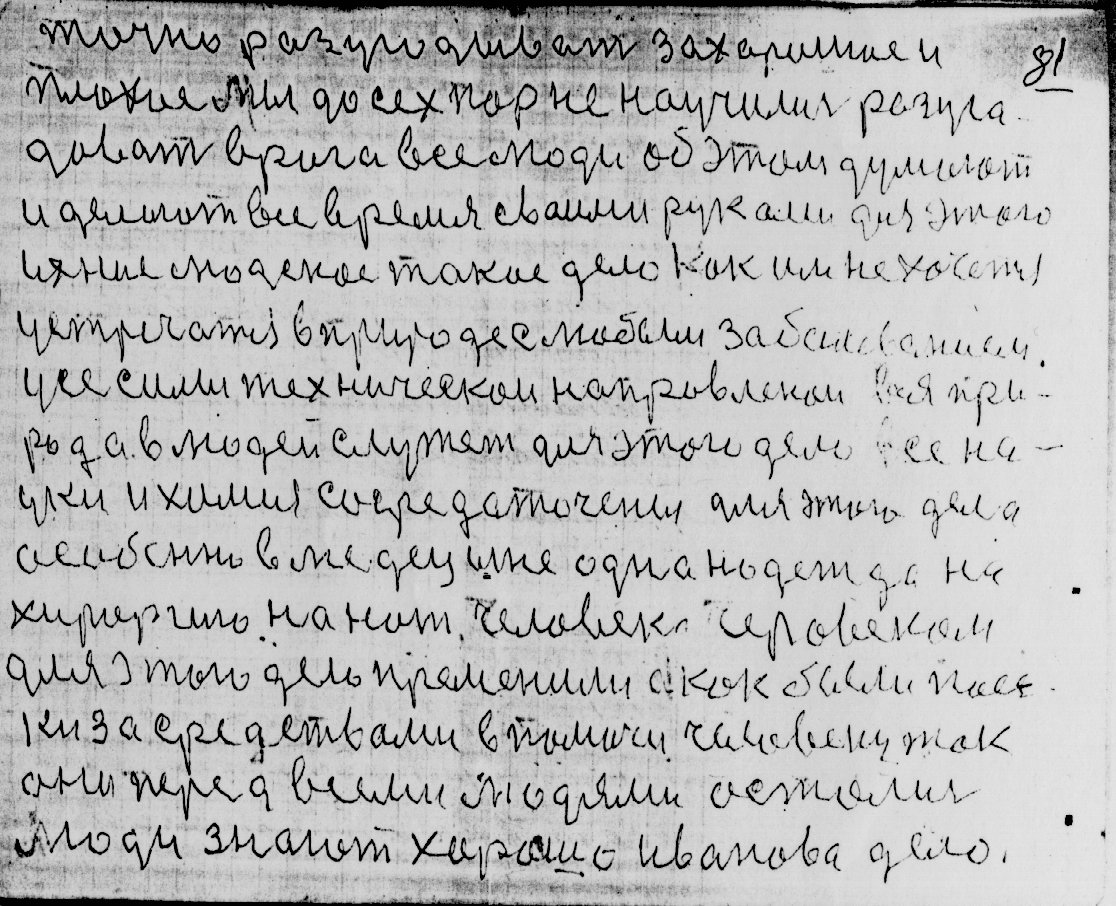 точно разугодыват захорошое и
81
плохое Мы до сех пор не научились разуга-
доват врага все люди об этом думают
и делают все время своими руками для этого
людское такое дело как им не хочется
устречатся в природе с любым заболеванием.
усе сили технической направленои вся при-
рода в людей служет для этого дело все на-
уки и химия сосредоточена для этого дела
особенно в медецыне одна нодежда на
хирергию на нот человека человеком
для этого дело пременили а как были поес-
ки за средствами в помочи человеку так
они перед всеми людями остались
Люди знают хорошо иванова дело.